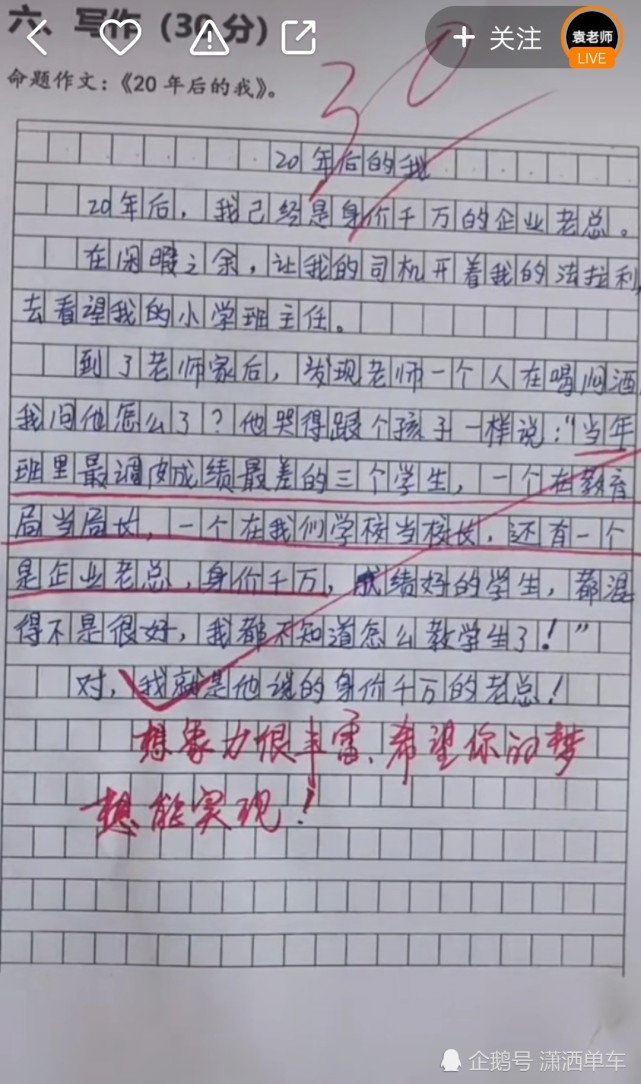 六、写作（30分）
+ 关注
袁老师
LIVE
命题作文：《20 年后的我》。
30
20年后的我
20年后，我已经是身价千万的企业老总。
在闲暇之余，让我的司机开着我的法拉利，
去看望我的小学班主任。
到了老师家后，发现老师一个人在喝闷酒
我问他怎么了？他哭得跟个孩子一样说："当年
班里最调皮成绩最差的三个学生，一个在教育
局当局长，一个在我们学校当校长，还有一个
是企业老总，身价千万，成绩好的学生，都混
得不是很好，我都不知道怎么教学生了！"
对，我就是他说的身价千万的老总！
想象力很丰富、希望你的梦
想能实现！
企鹅号 潇洒单车